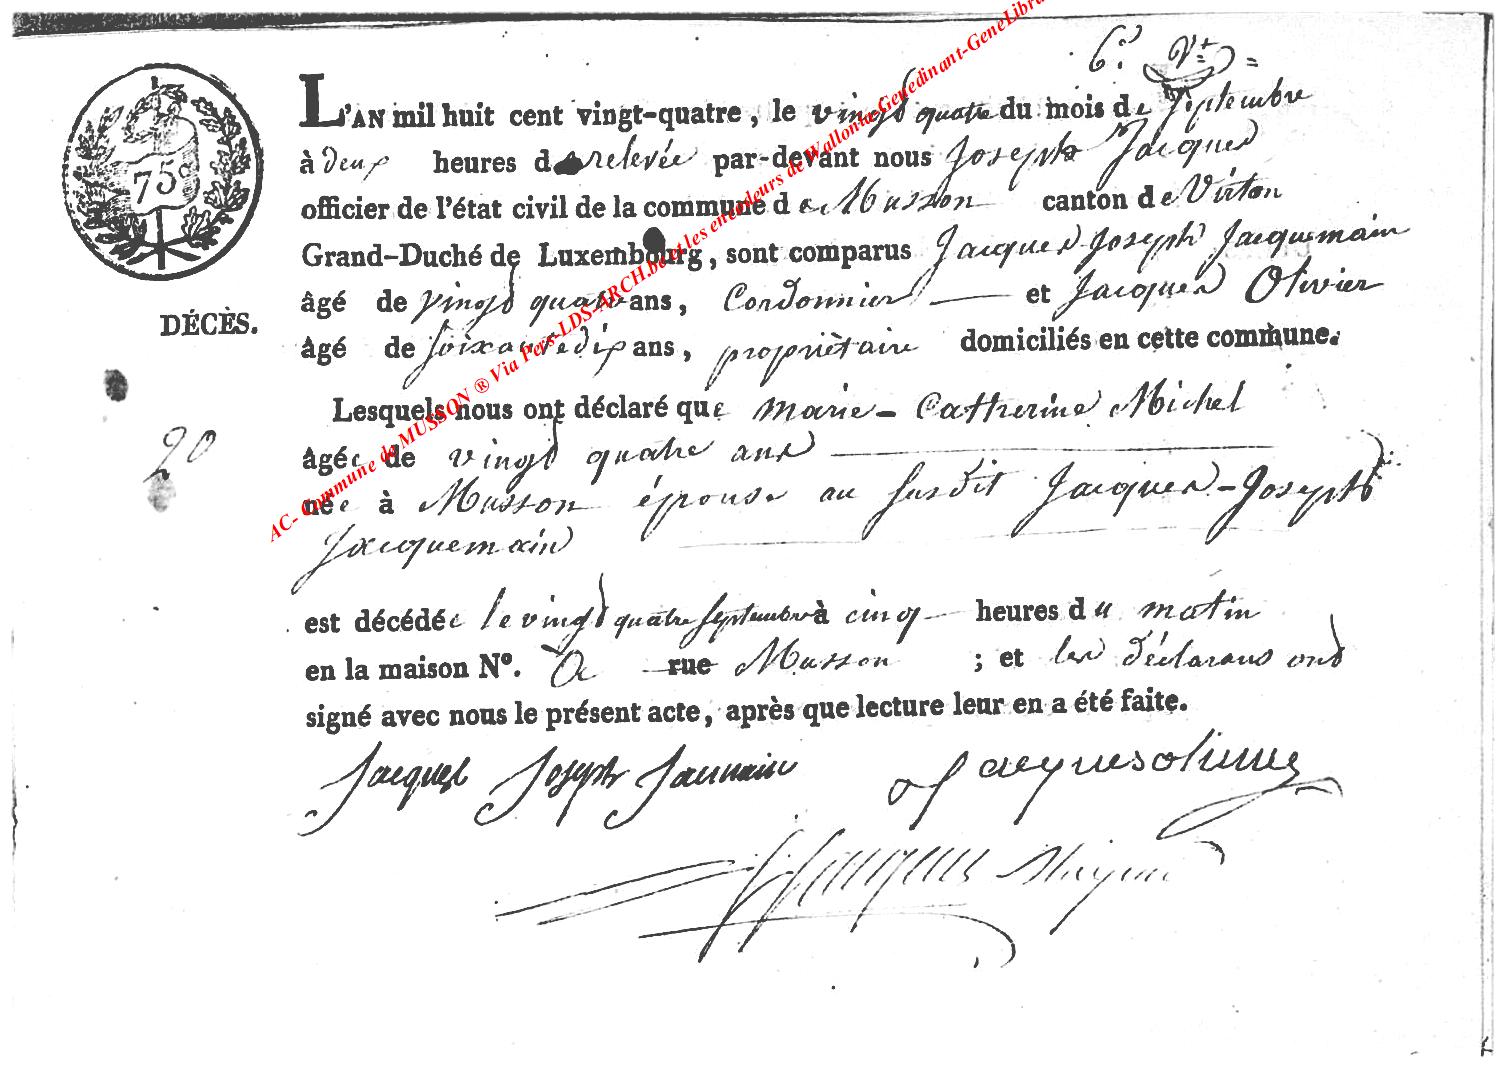 6.e
75c
L'AN mil huit cent vingt-quatre, le vingt quatre du mois de Septembre
à deux heures de relevée par-devant nous Joseph Jacques
officier de l'état civil de la commune de Musson canton de Virton
Grand-Duché de Luxembourg, sont comparus Jacques Joseph Jacquemain
âgé de vingt quatre ans, Cordonnier et Jacques Olivier
DÉCÈS.
âgé de soixante dix ans, propriètaire domiciliés en cette commune.
Lesquels nous ont déclaré que marie-Catherine Michel
20
âgée de vingt quatre ans
née à Musson épouse au susdit Jacques-Joseph
Jacquemain
est décédée le vingt quatre Septembre à cinq heures du matin
en la maison N°. rue Musson ; et les déclarans ont
signé avec nous le présent acte, après que lecture leur en a été faite.
Jacques Joseph Jacmain Jacques olivier
Jacques
AC- Commune de MUSSON ® Via Pers-LDS-ARCH.be et les encodeurs de Wallonia-Genedinant-GeneLibra